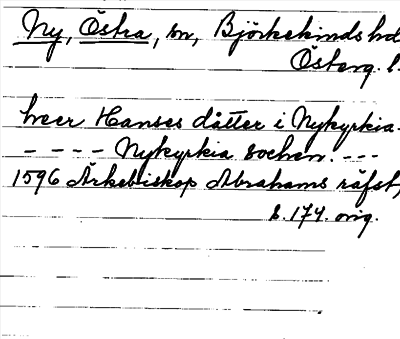 Ny, Östra, sn, Björkekinds hd
Österg. l.
hreer Hanses dätter i Nykyrkia.
---- Nykyrkia sochen. ---
1596 Ärkebiskop Abrahams räfst,
s. 174. orig.